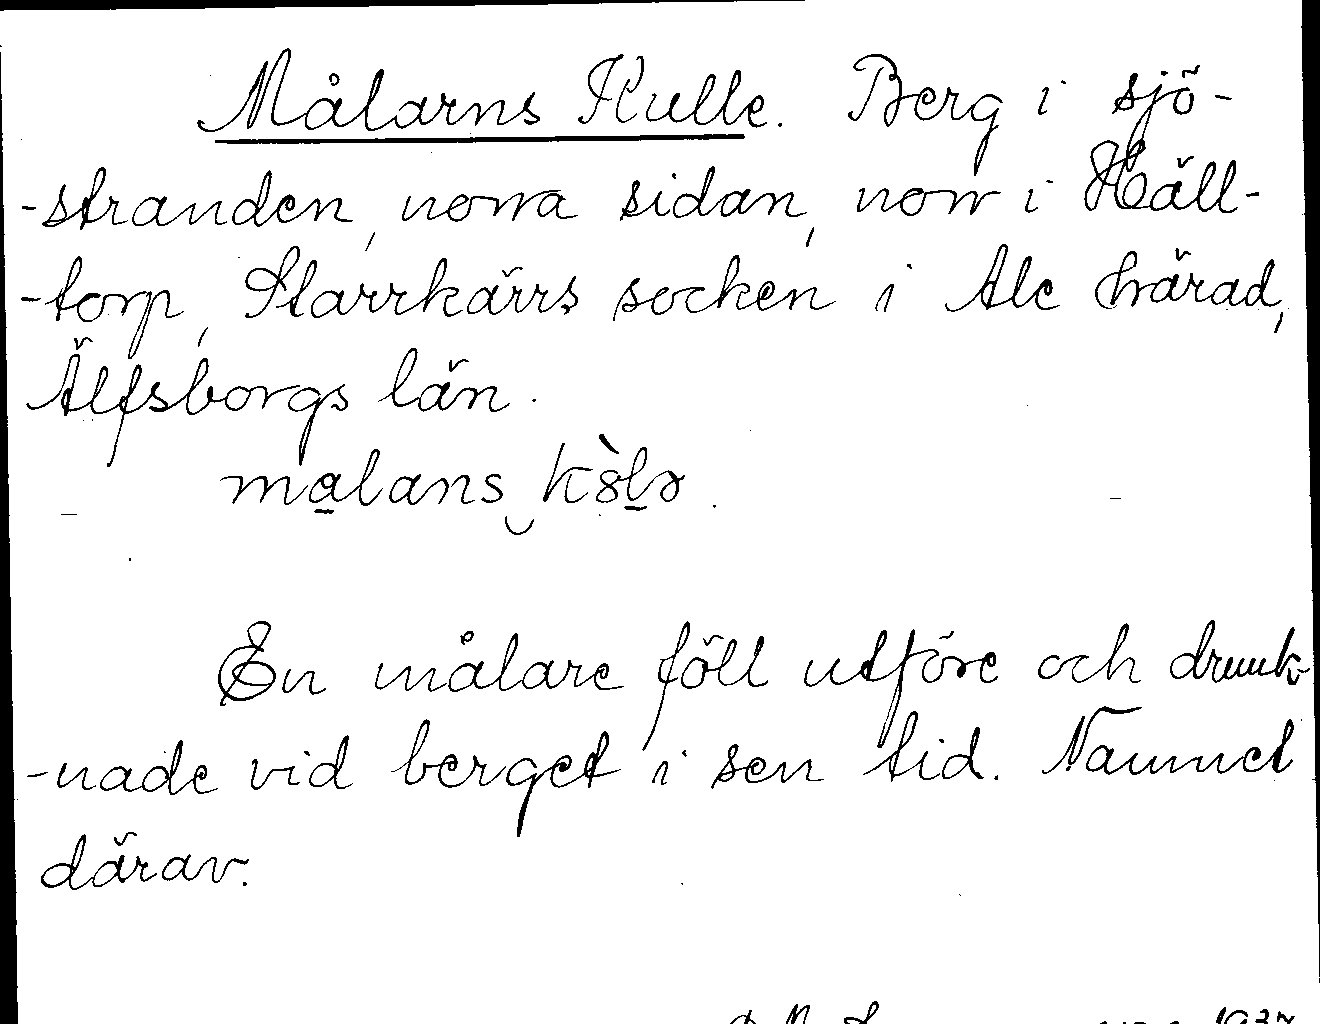 Målarns Kulle. Berg i sjö-
-stranden, norra sidan, norr i Häll-
-torp, Starrkärrs socken i Ale härad,
Älfsborgs län.
En målare föll utföre och drunk-
-nade vid berget i sen tid. Namnet
därav.
1937